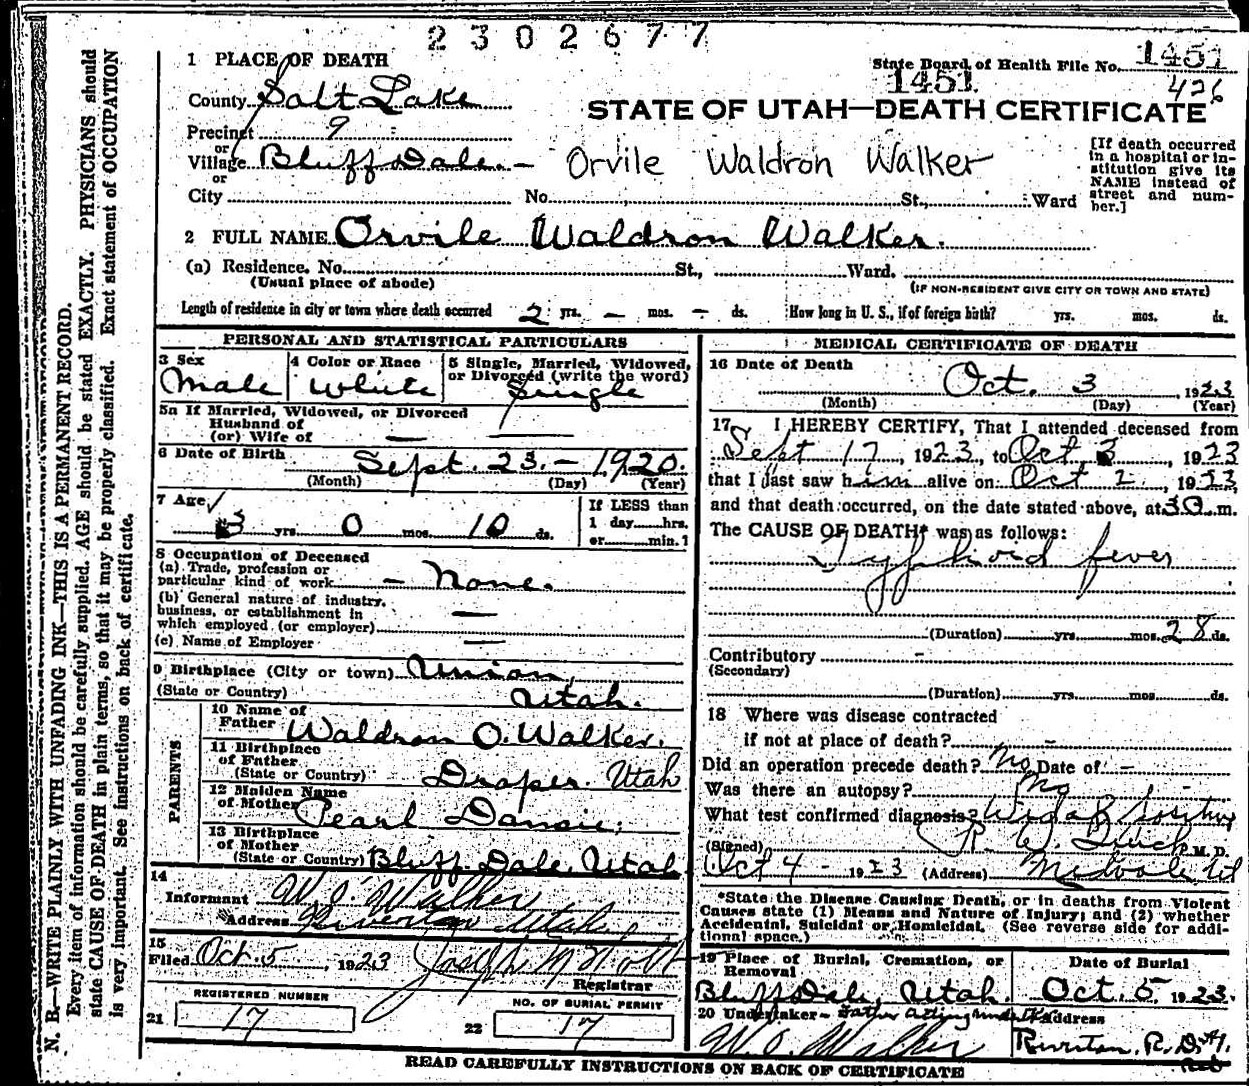 2302677
1 PLACE OF DEATH
State Board of Health File No. 1451
1451 426
County Salt Lake
STATE OF UTAH—DEATH CERTIFICATE
Precinct 9
or
Village Bluff Dale. - Orvile Waldron Walker
or
City No. St., Ward
[If death occurred in a hospital or institution give its NAME instead of street and number.]
2 FULL NAME Orvile Waldron Walker.
(a) Residence. No. St., Ward.
(Usual place of abode) (IF NON-RESIDENT GIVE CITY OR TOWN AND STATE)
Length of residence in city or town where death occurred 2 yrs. — mos. — ds. How long in U. S., if of foreign birth? yrs. mos. ds.
PERSONAL AND STATISTICAL PARTICULARS
3 Sex
Male
4 Color or Race
White
5 Single, Married, Widowed, or Divorced (write the word)
Single
5a If Married, Widowed, or Divorced
Husband of
(or) Wife of —
6 Date of Birth Sept. 23. - 1920.
(Month) (Day) (Year)
7 Age
3 yrs 0 mos 10 ds.
If LESS than
1 day hrs.
or min.?
8 Occupation of Deceased
(a) Trade, profession or
particular kind of work - None.
(b) General nature of industry,
business, or establishment in
which employed (or employer) —
(c) Name of Employer —
9 Birthplace (City or town) Union,
(State or Country) Utah.
PARENTS
10 Name of
Father Waldron O. Walker.
11 Birthplace
of Father
(State or Country) Draper. Utah
12 Maiden Name
of Mother Pearl Dansie;
13 Birthplace
of Mother
(State or Country) Bluff Dale. Utah
14
Informant W. O. Walker
Address Riverton Utah
15
Filed Oct. 5, 1923 Joseph
Registrar
REGISTERED NUMBER
21 17
NO. OF BURIAL PERMIT
22 17
MEDICAL CERTIFICATE OF DEATH
16 Date of Death
Oct. 3, 1923
(Month) (Day) (Year)
17 I HEREBY CERTIFY, That I attended deceased from
Sept 17, 1923, to Oct 3, 1923
that I last saw him alive on Oct 2, 1923,
and that death occurred, on the date stated above, at m.
The CAUSE OF DEATH* was as follows:
Typhoid fever
(Duration) yrs. mos. 28 ds.
Contributory
(Secondary)
(Duration) yrs. mos. ds.
18 Where was disease contracted
if not at place of death? -
Did an operation precede death? No Date of -
Was there an autopsy? No
What test confirmed diagnosis? Widal
(Signed) R. W. M.D.
Oct 4 1923 (Address) Midvale Ut
*State the Disease Causing Death, or in deaths from Violent
Causes state (1) Means and Nature of Injury; and (2) whether
Accidental, Suicidal or Homicidal. (See reverse side for additional space.)
19 Place of Burial, Cremation, or
Removal
Bluff Dale, Utah.
Date of Burial
Oct. 5 1923.
20 Undertaker - Father acting undertaker
W. O. Walker
Address
Riverton, R.D.#1.
READ CAREFULLY INSTRUCTIONS ON BACK OF CERTIFICATE
N. B.—WRITE PLAINLY WITH UNFADING INK—THIS IS A PERMANENT RECORD.
Every item of information should be carefully supplied. AGE should be stated EXACTLY. PHYSICIANS should
state CAUSE OF DEATH in plain terms, so that it may be properly classified. Exact statement of OCCUPATION
is very important. See instructions on back of certificate.